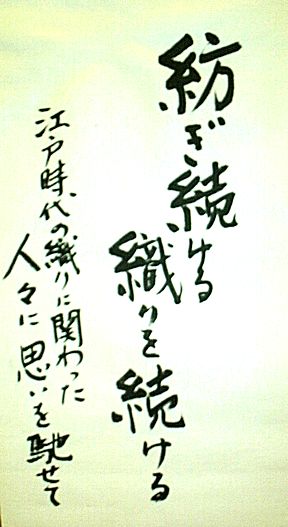 紡ぎ続ける
織りを続ける
江戸時代の織りに関わった
人々に思いを馳せて